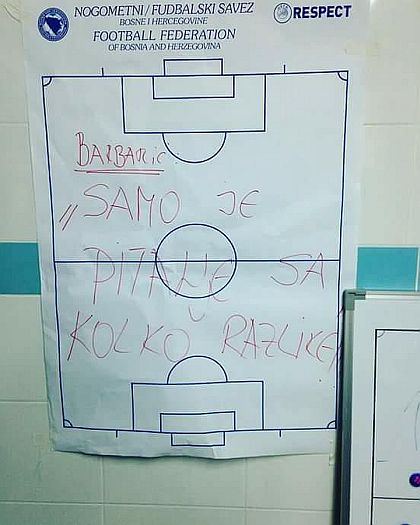 NOGOMETNI / FUDBALSKI SAVEZ
BOSNE I HERCEGOVINE
FOOTBALL FEDERATION
OF BOSNIA AND HERZEGOVINA
RESPECT
BARBARIC
„SAMO JE
PITANJE SA
KOLKO RAZLIKE